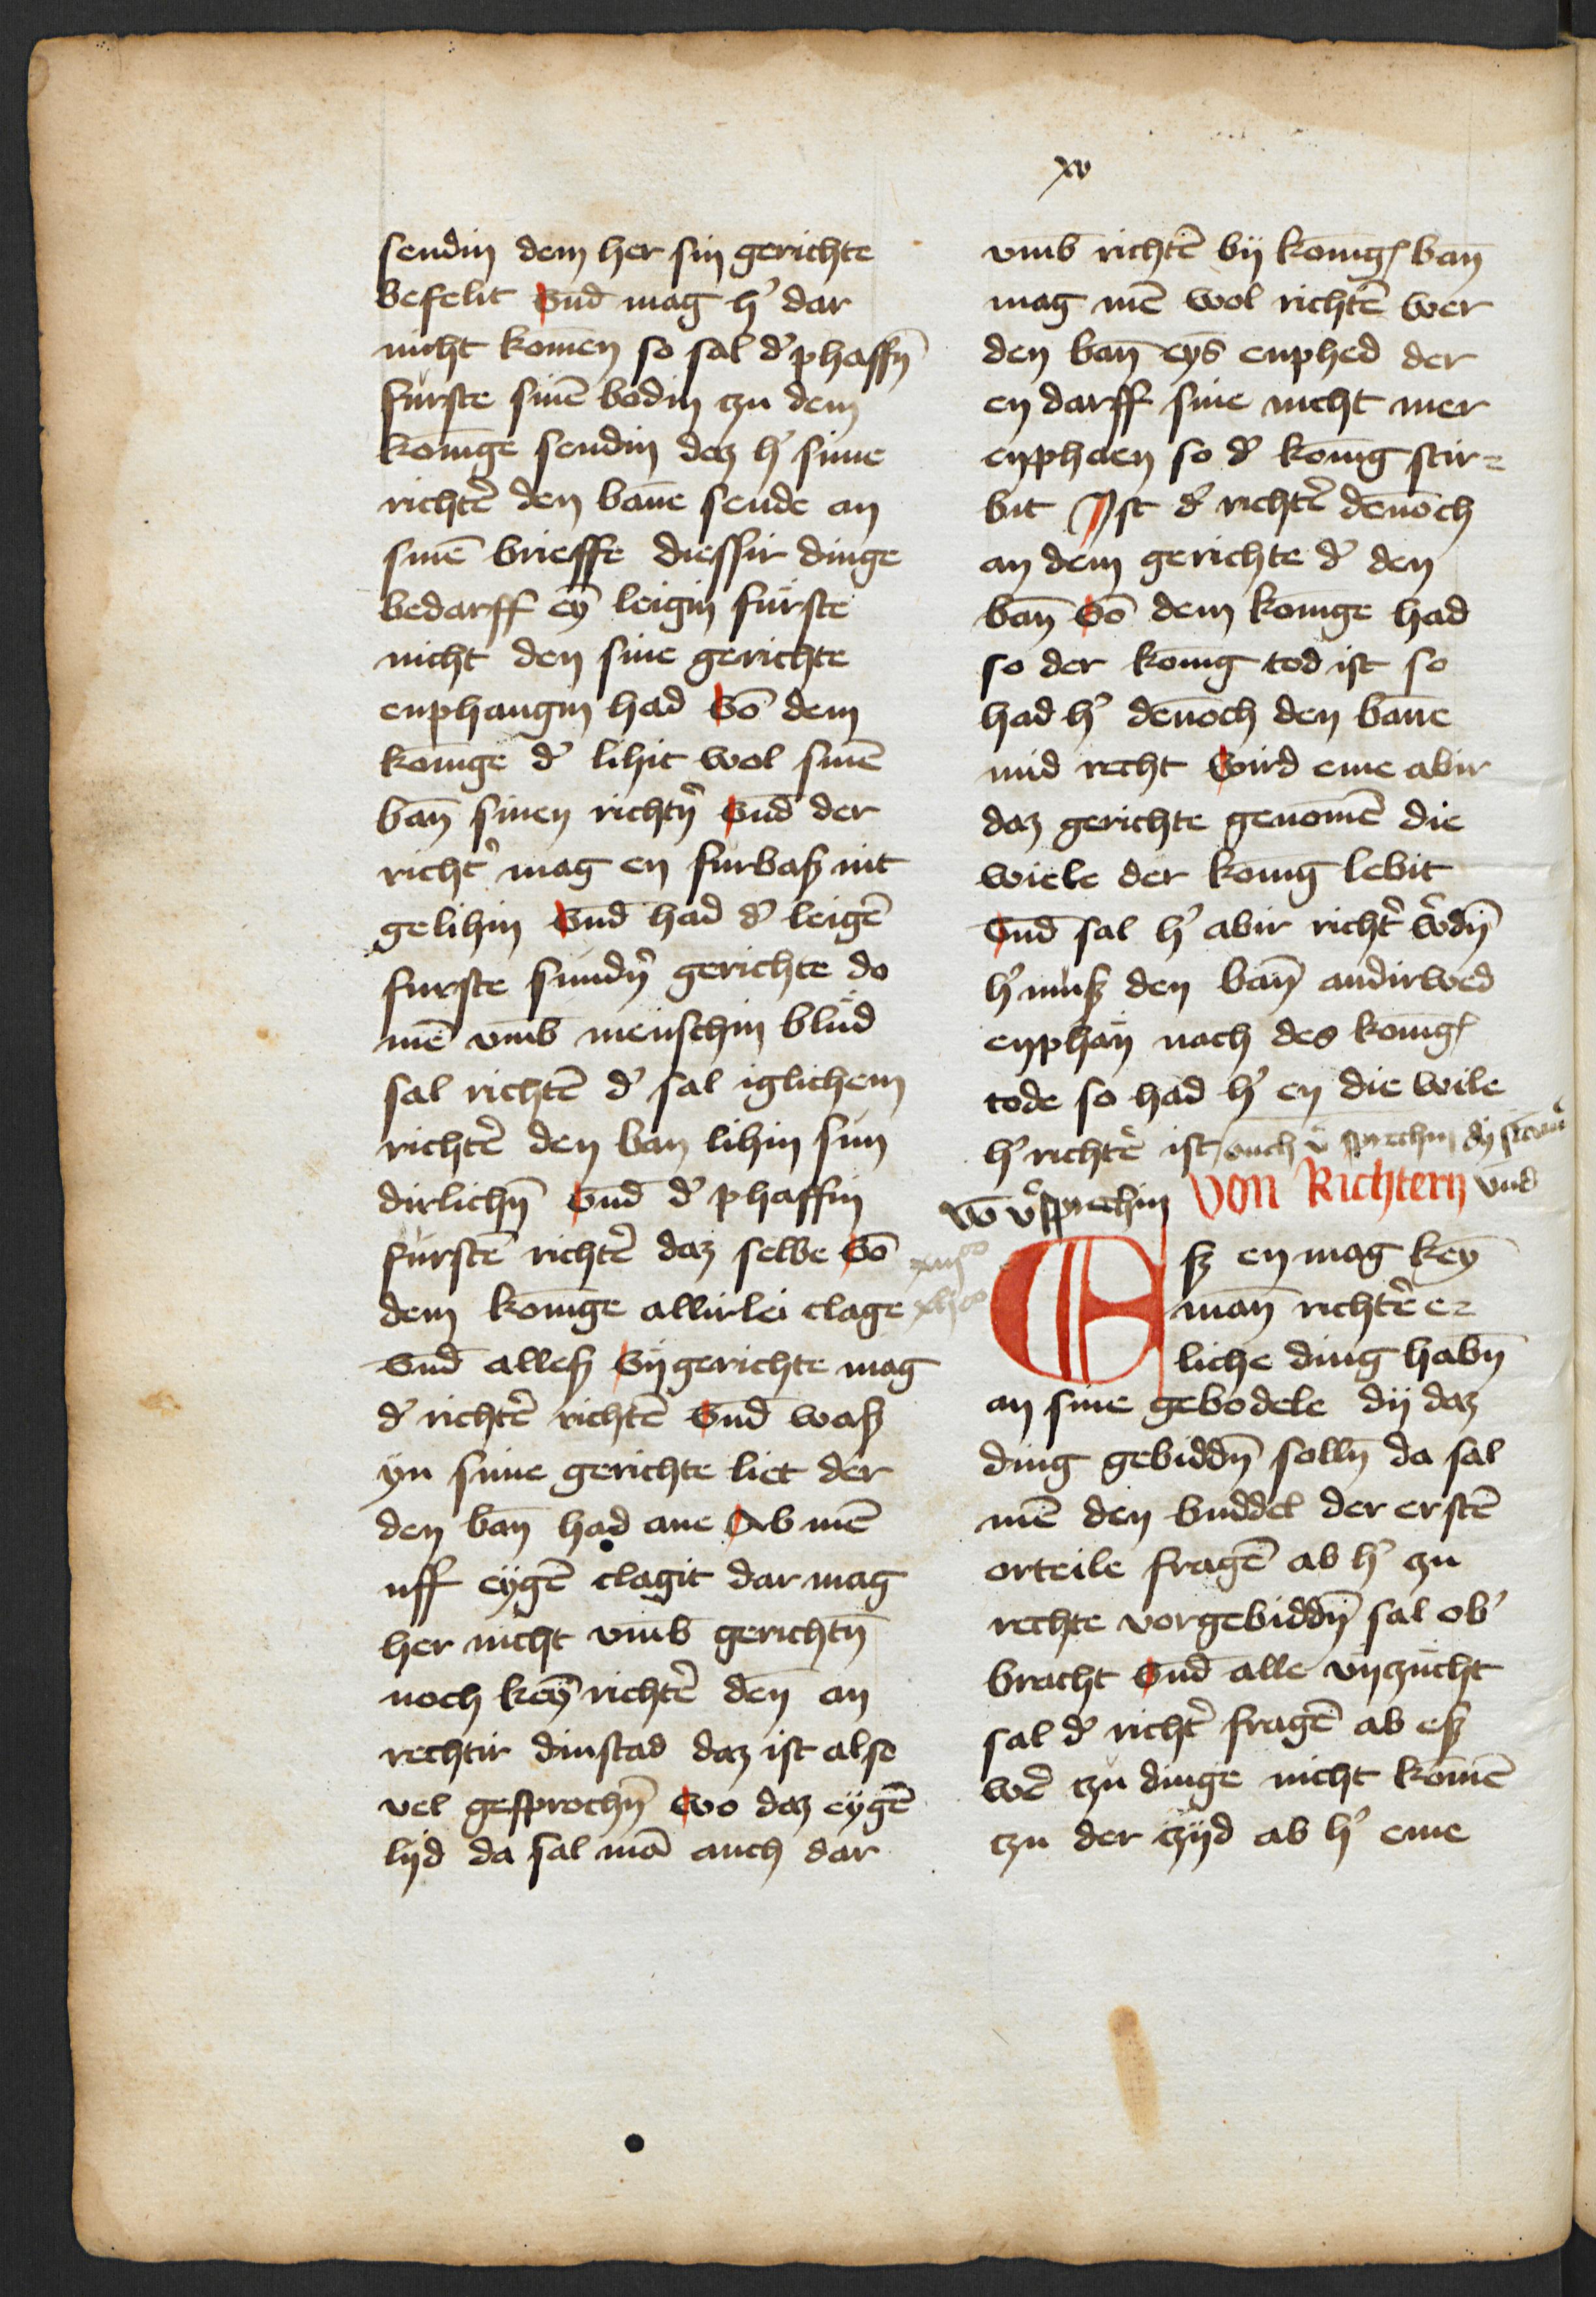 xv
sendin dem her sin gerichte
befelit vnd̄ mag h' dar
nicht komēn so sal d' phaffn̄
furste sinē bodin czu dem
konīge sendin daz h' sime
richtē den bañe sende an
sinē brieffe diessir dinge
bedarff eȳ leigin fürste
nicht den sine gerichte
enphangin had vō dem
konīge d' lihit wol sinē
bañ sinen richtn̄ vnd̄ der
richt' mag en furbaß nit
gelihin vnd̄ had d' leigē
furste sundn̄ gerichte do
mē vm̄b menschin blůd
sal richtē d' sal iglichem
richtē den ban lihin sun
dirlichn̄ vnd̄ d' phaffin
furstē richtē daz selbe vō
dem konīge allirlei clage
vnd̄ alleß vngerichte mag
d' richtē richtē vnd̄ waß
yn sime gerichte liet der
den bañ had ane Ab mē
uff eygē clagit dar mag
her nicht vm̄b gerichtn̄
noch keȳ richtē den̄ an
rechtir dinstad daz ist also
vel gesprochn̄ wo daz eygē
lijd da sal mā auch dar
vm̄b richtē bij konīgs bañ
mag mē wol richtē wer
den bañ eyns enphed der
en darff sine nicht mer
enphaen so d' konīg stir=
bit Ist d' richtē den̄och
an dem gerichte d' den
bañ vō dem konīge had
so der konīg tod ist so
had h' den̄och den bañe
mid recht wird eme abir
daz gerichte genom̄ē die
wiele der konīg lebit
vnd̄ sal h' abir richt' w'dn̄
h' muß den bañ andirwed
enphan nach des konīgs
tode so had h' en die wile
h' richtē ist
Von Richtern vnd
vō v'sprechin
Eß en mag keȳ
man̄ richtē e=
liche ding habn̄
an sine gebodele dij daz
ding gebiddn̄ solln̄ da sal
mē den buddel der erstē
orteile fragē ab h' zu
rechte vorgebiddn̄ sal ob'
bracht vnd̄ alle vnzucht
sal d' richt' fragē ab eß
wē czu dinge nicht komē
czu der czijd ab h' eme